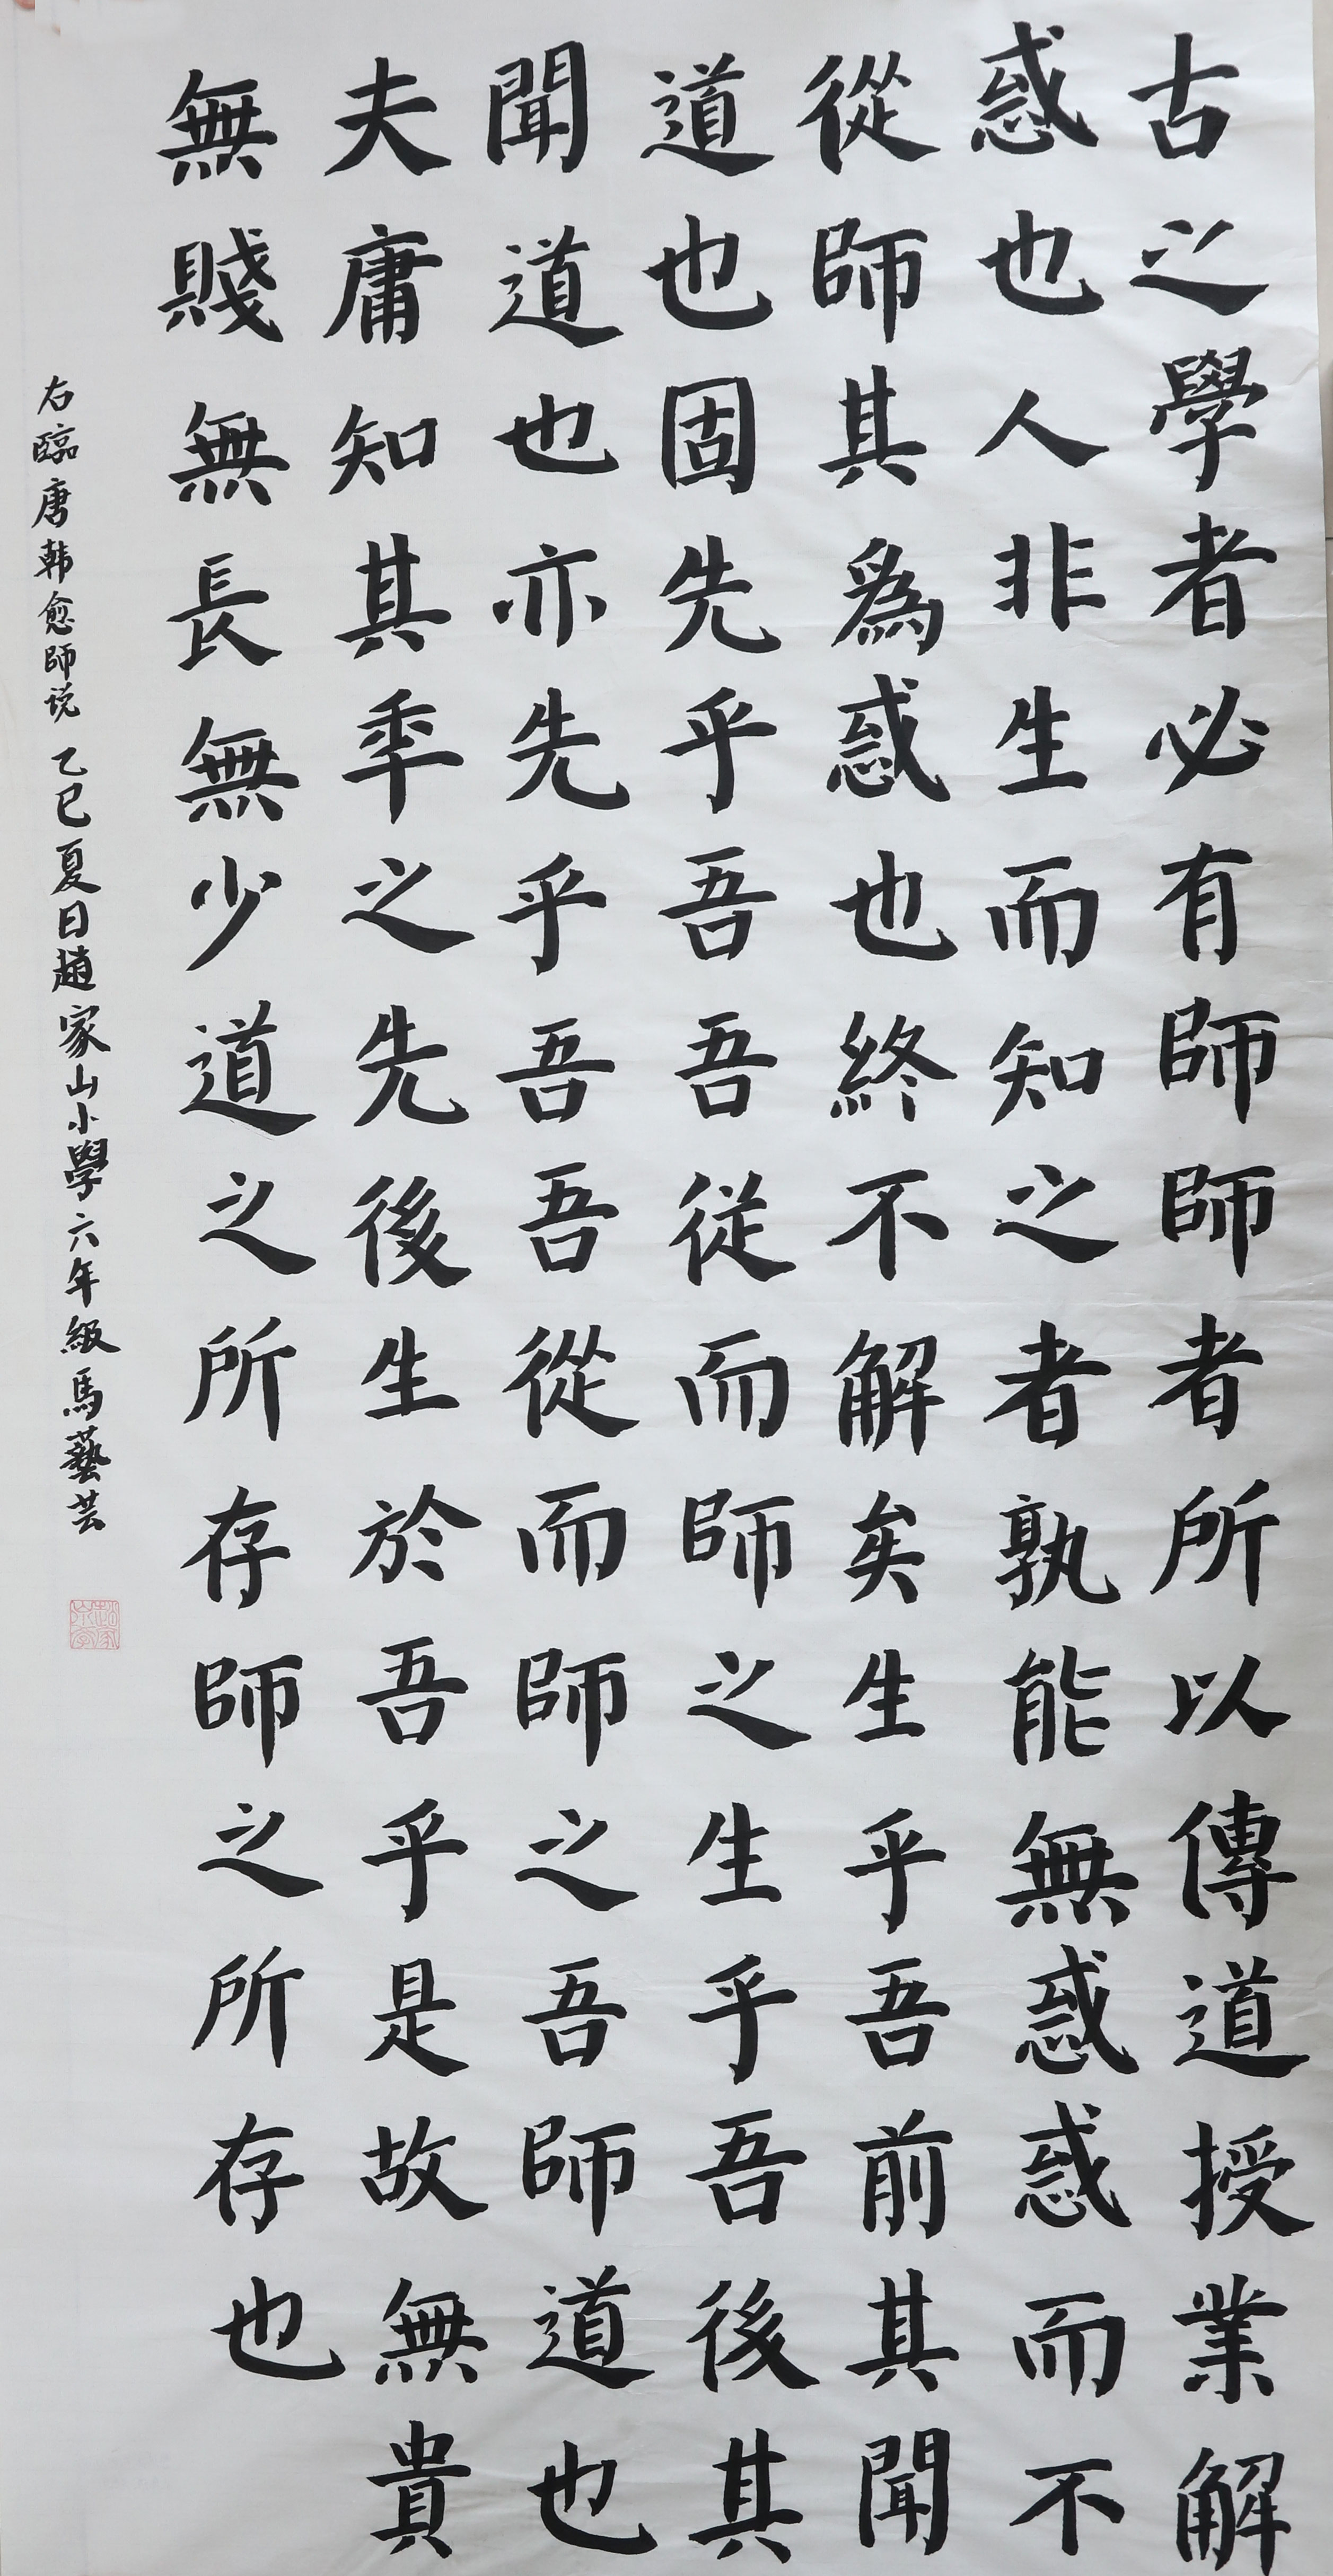 古之學者必有師師者所以傳道授業解
惑也人非生而知之者孰能無惑惑而不
從師其爲惑也終不解矣生乎吾前其聞
道也固先乎吾吾從而師之生乎吾後其
聞道也亦先乎吾吾從而師之吾師道也
夫庸知其年之先後生於吾乎是故無貴
無賤無長無少道之所存師之所存也
右臨唐韩愈師说乙巳夏日趙家山小學六年級馬藝芸